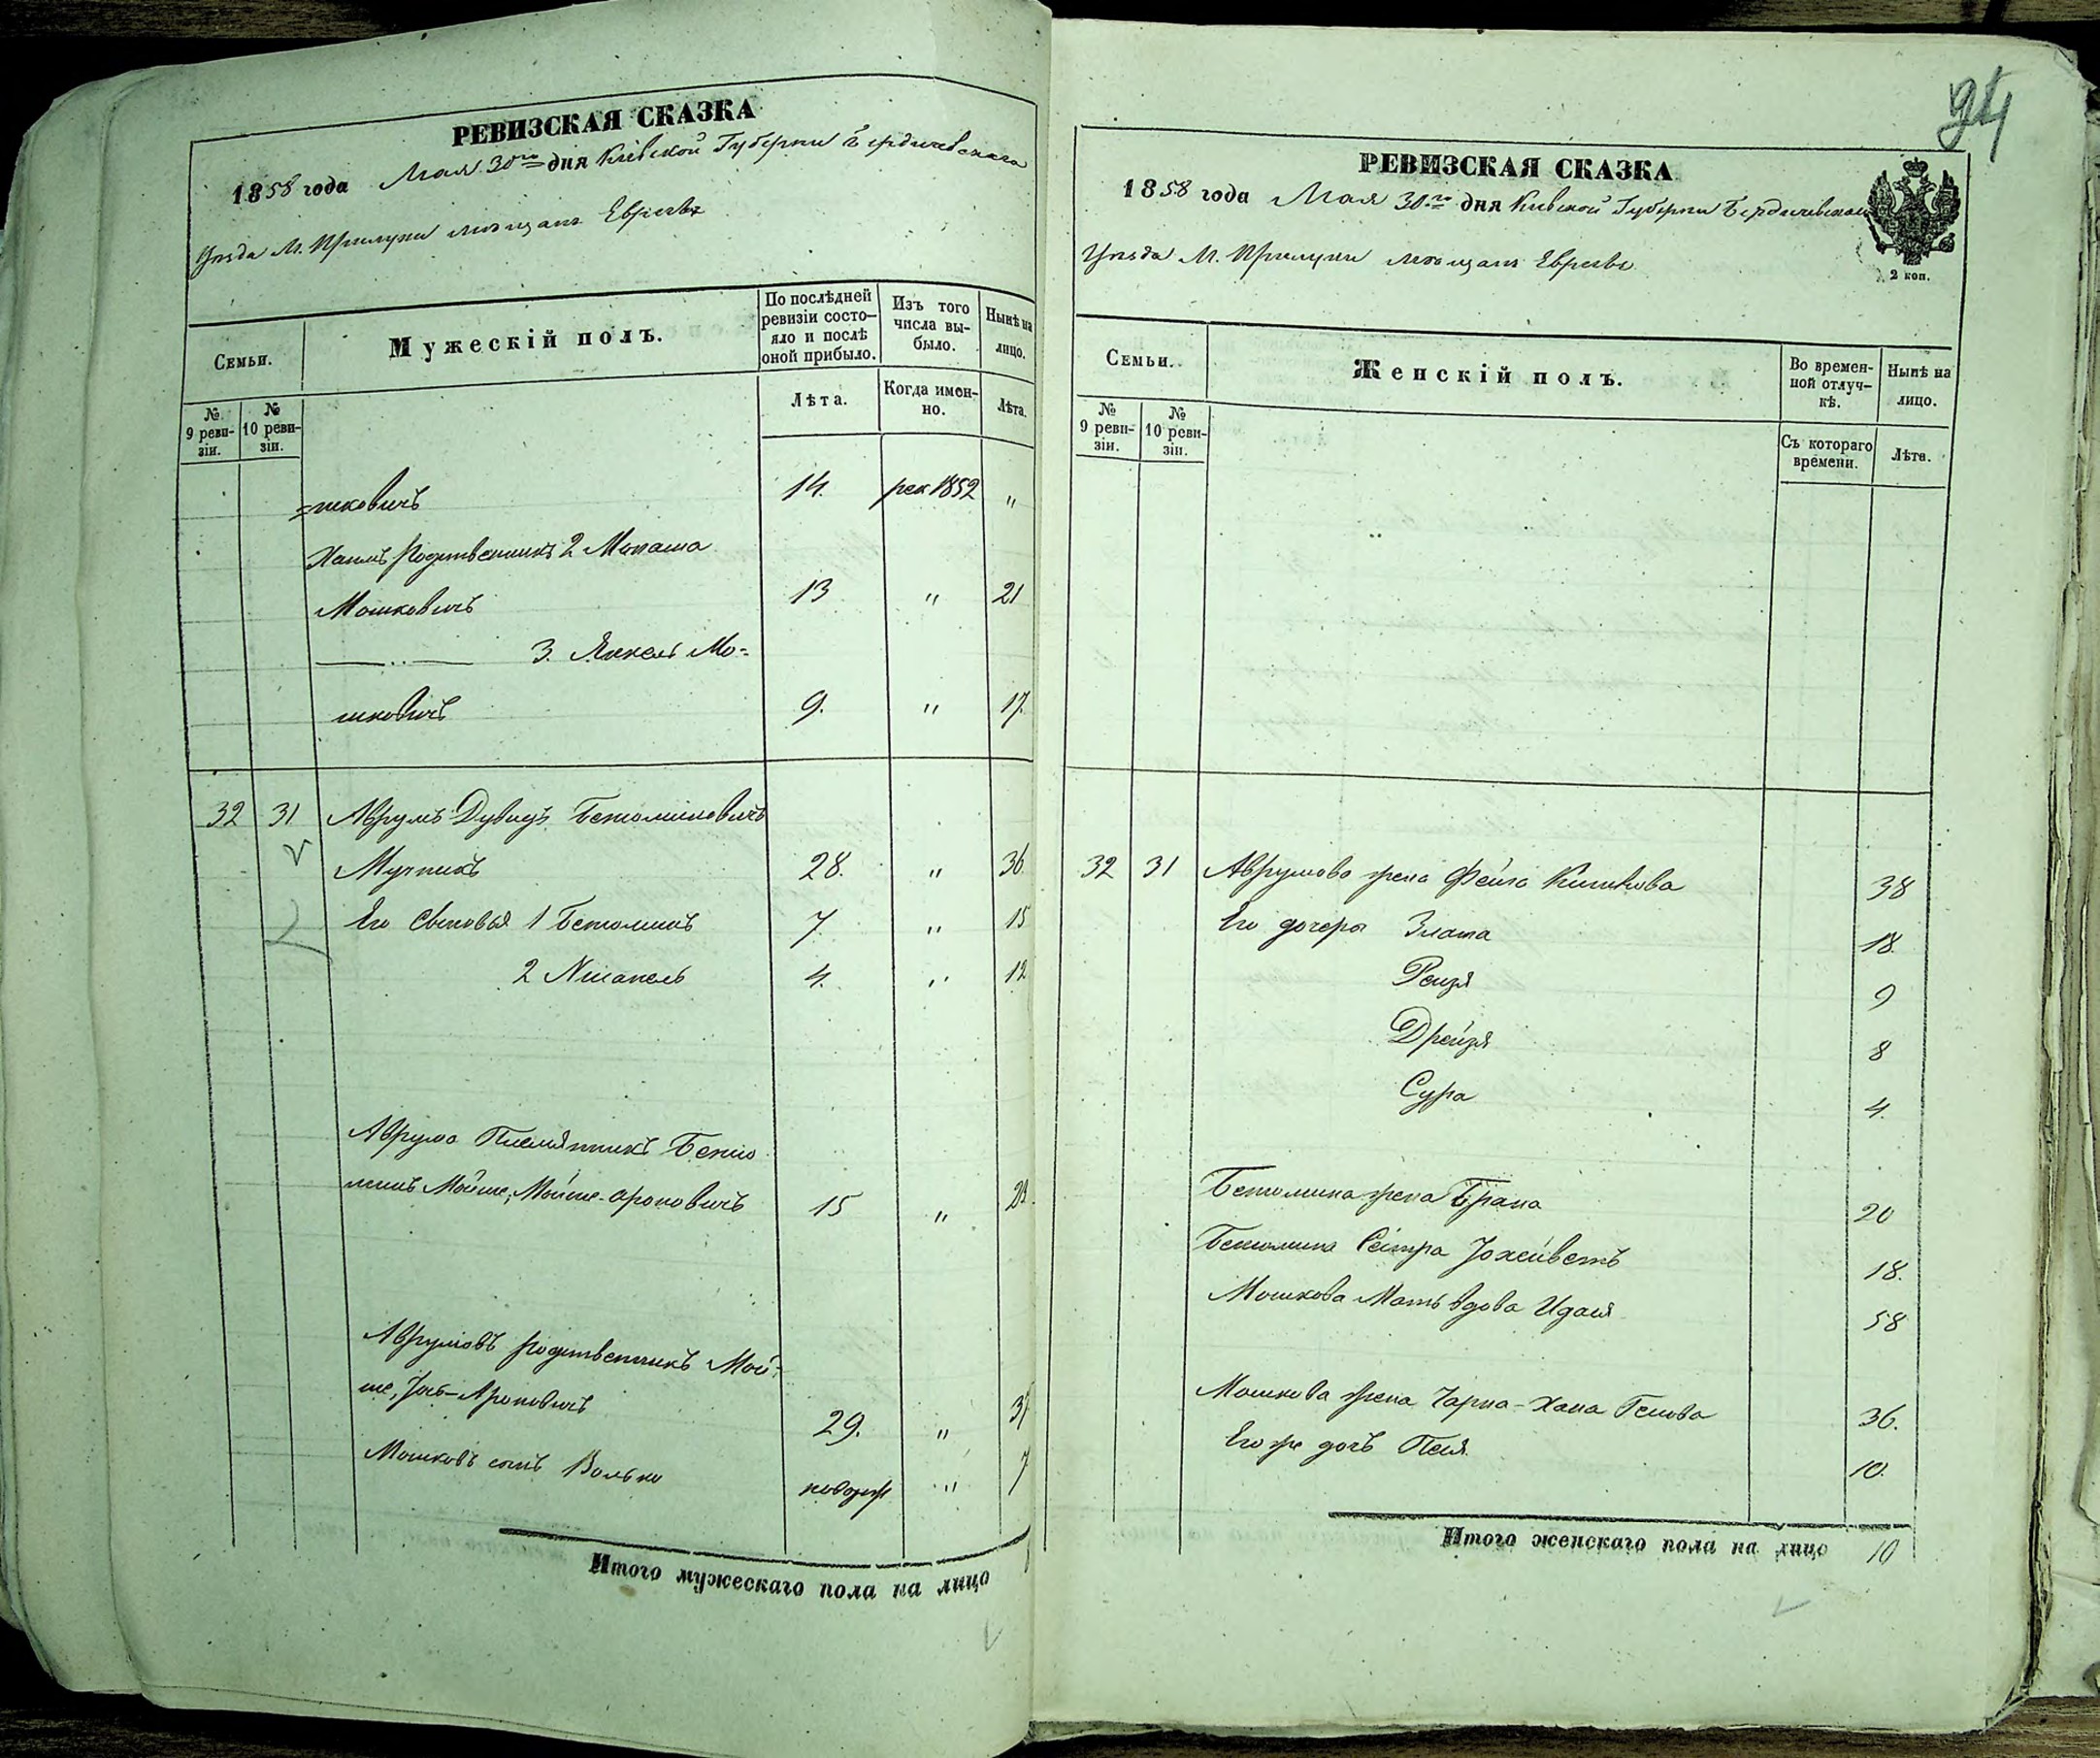 РЕВИЗСКАЯ СКАЗКА
1858 года Мая 30го дня Кіевской Губерни Бердичевскаго
Уезда М. Прилуки мещанъ Евреевъ
Семьи.
Мужескій полъ.
По послѣдней ревизіи состо-
яло и послѣ оной прибыло.
Изъ того числа вы-
было.
Нынѣ на лицо.
№ 9 реви-
зіи.
№ 10 реви-
зіи.
Лѣта.
Когда имен-
но.
Лѣта.
=шковичъ 14. рек 1852 "
Родственникъ 2 Манаша
Мошковичъ 13 " 21
—..— 3. Янкель Мо=
шковичъ 9. " 17.
32 31 Аврумъ Дувидъ Бенюминовичъ
Мучникъ 28. " 36.
Его Сыновья 1 Бенюминъ 7 " 15
2 4. " 12
Аврума Племянникъ Беню
минъ Мойше, Мойше-Ароновичъ 15 " 23.
Аврумовъ родственникъ Мой-
ше, Ароновичъ 29. " 37
Мошковъ сынъ Волько новорож " 7
Итого мужескаго пола на лицо
94
РЕВИЗСКАЯ СКАЗКА
1858 года Мая 30го дня Кіевской Губерни Бердичевскаго
2 коп.
Уезда М. Прилуки мещанъ Евреевъ
Семьи.
Женскій полъ.
Во времен-
ной отлуч-
кѣ.
Нынѣ на лицо.
№ 9 реви-
зіи.
№ 10 реви-
зіи.
Съ котораго времени.
Лѣта.
32 31 Аврумова жена Фейга Ицикова 38
Его дочеры Злата 18.
Рейзя 9
Дрейзя 8
Сура 4.
Бенюмина жена Брана 20
Бенюмина Сестра Іохейветъ 18.
Мошкова Мать вдова Идая 58
Мошкова жена Чарна-Хана 36.
Его же дочь Песя 10.
Итого женскаго пола на лицо 10